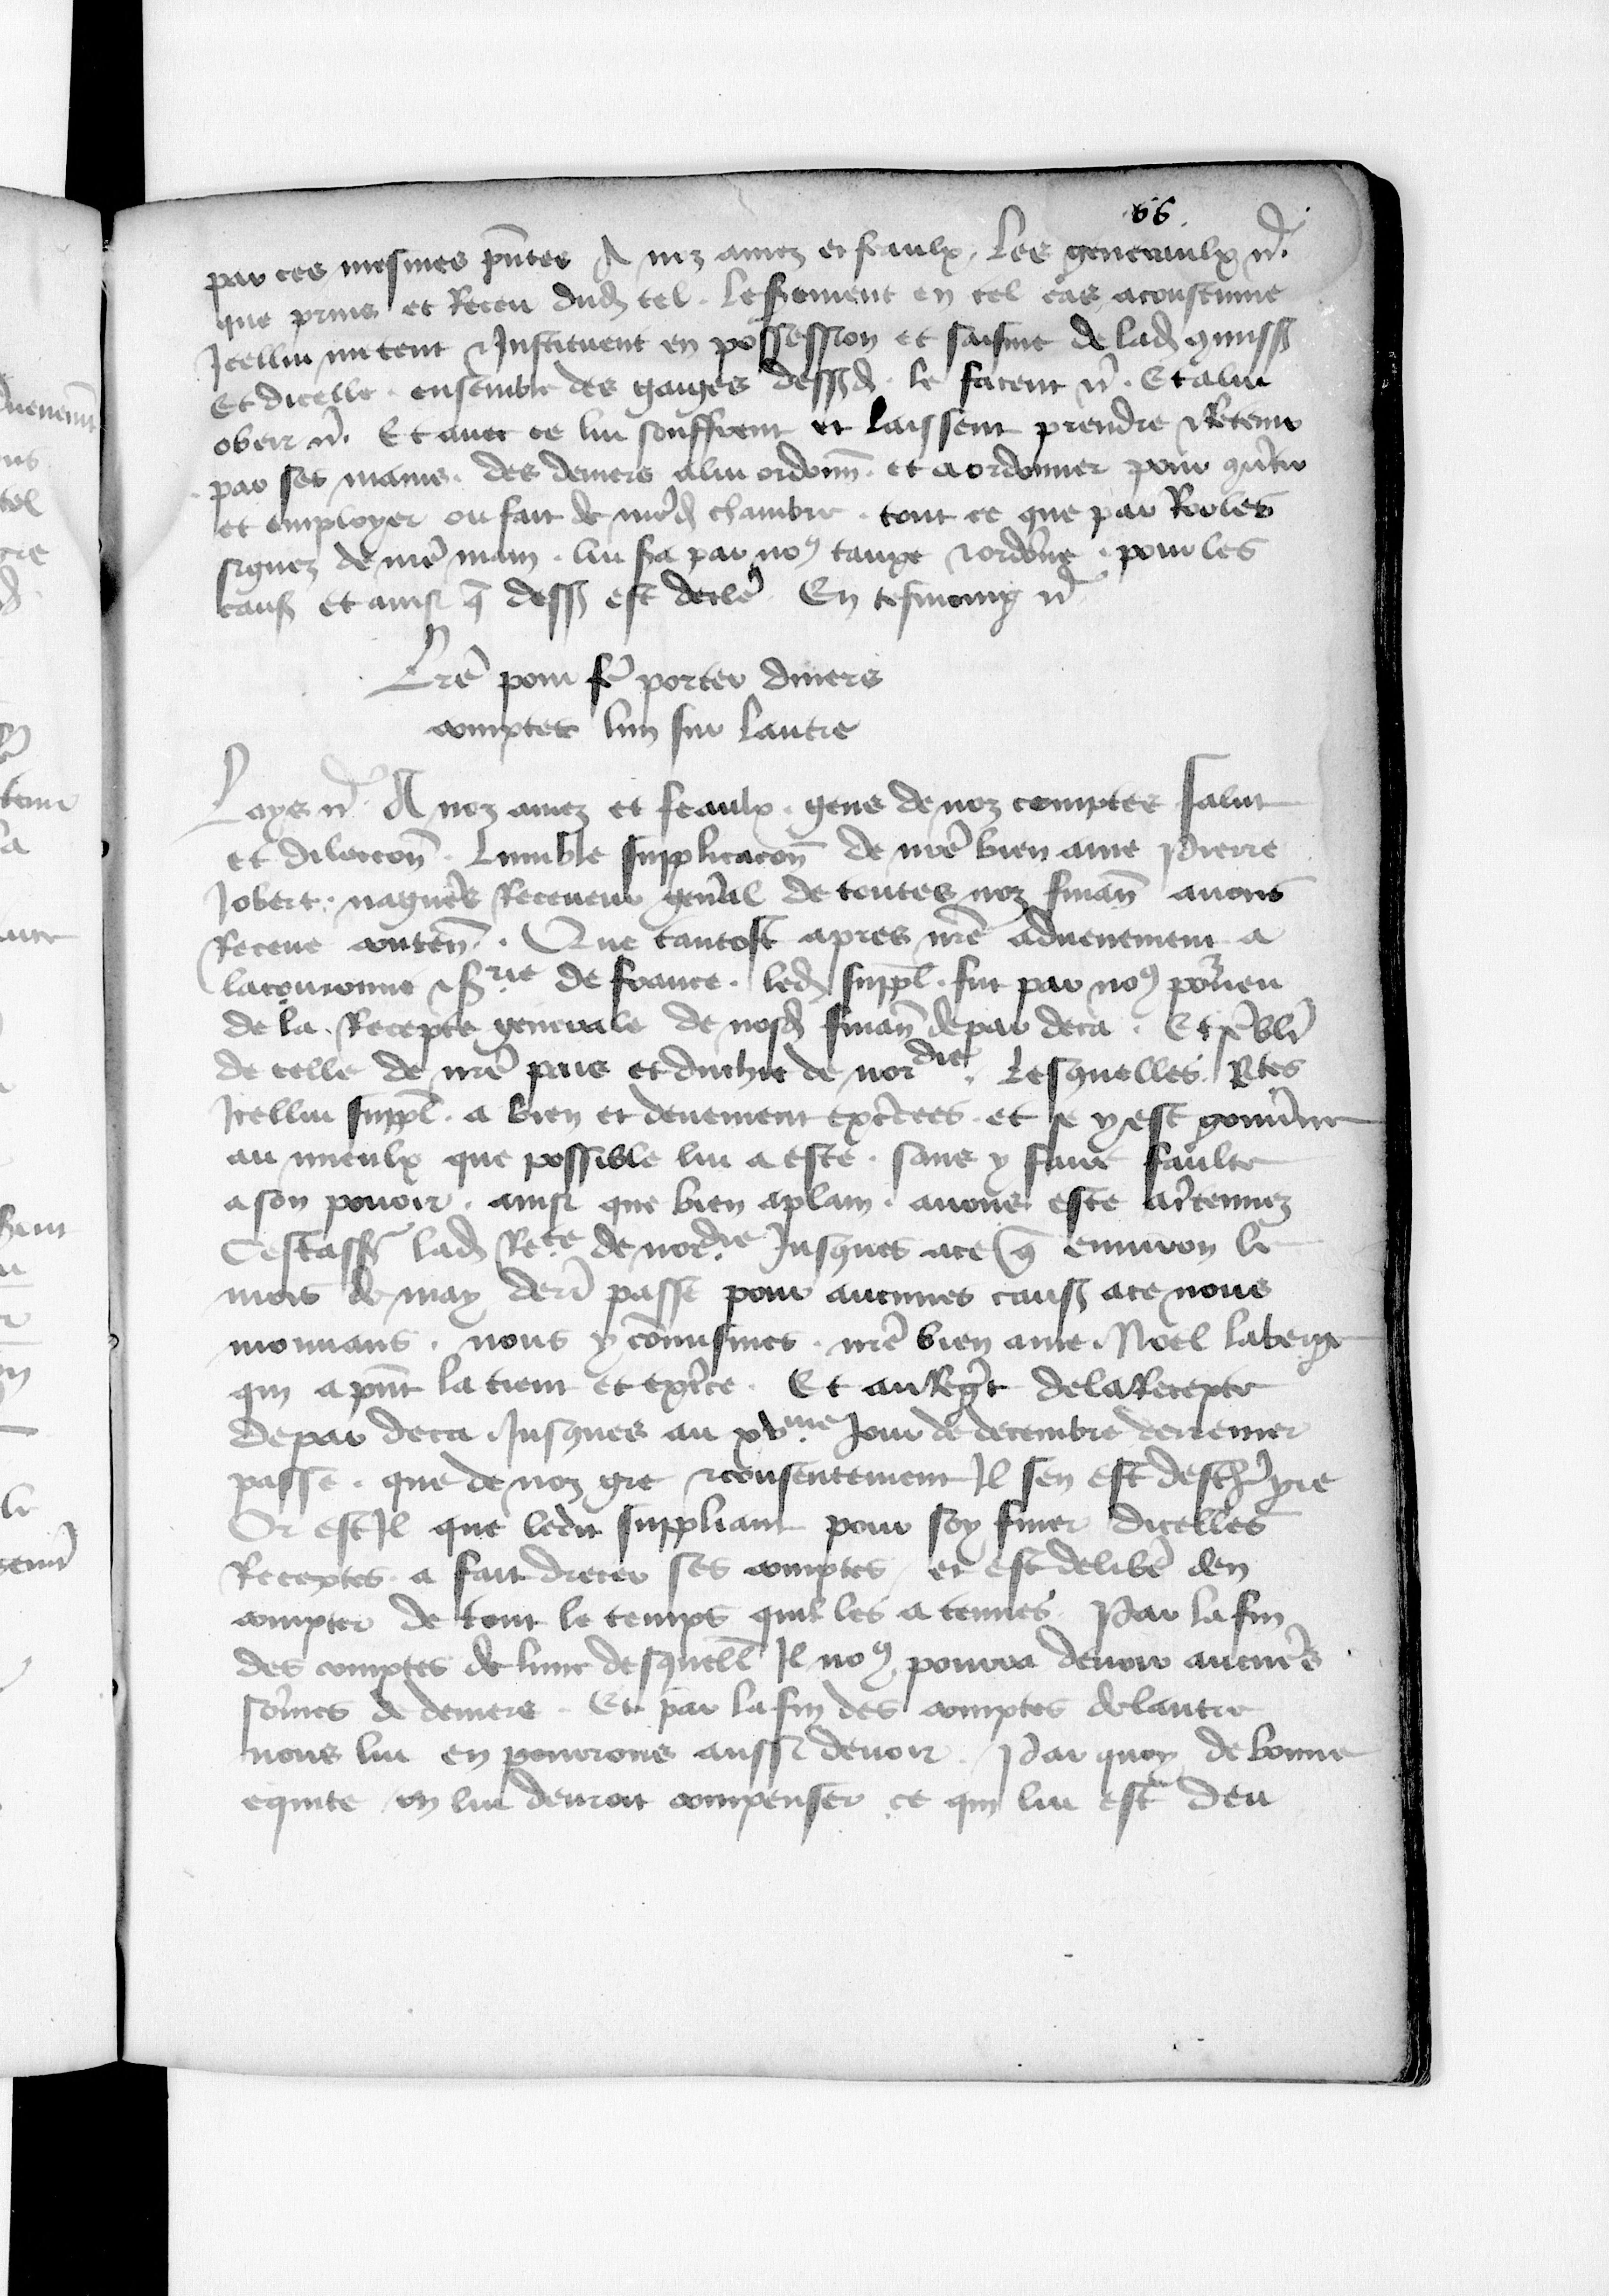 66
par ces mesmes pñtes A noz amez et feaulx, Les generaulx ec.
que prins et Receu dud tel. le serement en tel cas acoustume
Icellui mectent & Instituent en possession et saisine de lad commiss
Et dicelle. ensemble des gaiges dessusd. le facent ec. Et a lui
obeir ec. Et avec ce lui seuffrent et laissent prendre & Retenir
par ses mains. des deniers a lui ordonn. et a ordonner pour conv'tir
et employer ou fait de nrẽd chambre. tout ce que par Rooles
signez de nrẽ main. lui sera par no9 tauxe & ordone. pour les
causes et ainsi q̃ dess est decle. En tesmoing ec
Lrẽ pour fẽ porter divers
comptes lun sur lautre
Loys ec. A noz amez et feaulx. gens de noz comptes Salut
et dilection. Lumble supplicacoñ de nrẽ bien ame Pierre
Jobert. nagueres Receveur gen'al de toutes noz finañ avons
Receue conteñ. Que tantost apres nrẽ advenement a
la couronne & srie de france. led suppl. fut par no9 pourveu
de la Recepte generale de nosd finañ de par deca. Et sẽbl
de celle de nrẽ pais et duchie de nordie. Lesquelles Rtes
Icellui suppl. a bien et deuement exc'cees. et se y est gouv'ne
au mieulx que possible lui a este. sans y faire faulte
a son povoir. ainsi que bien a plain. avons este ac'tennez
Cestass' lad Rete de nordie Jusques a ce q̃ environ le
mois de may deri passe pour aucunes causes a ce nous
mouvans. nous y cõmismes. nrẽ bien ame. Noel labarge
qui a pñt la tient et exerce. Et au Reg't de la Recepte
de par deca. Jusques au xvme Jour de decembre derrenier
passe. que de noz gre & consentement Il sen est descharge
Or est Il que ledit suppliant pour soy finer dicelles
Receptes. a fait drecer ses comptes, et est delibe den
compter de tout le temps quil les a tenues. Par la fin
des comptes de lune desquell Il no9 pourra devoir aucunes
sõmes de deniers. Et par la fin des comptes de lautre
nous lui en pourrons aussi devoir. Par quoy de bonne
equite on lui devroit compenser ce qui lui est deu